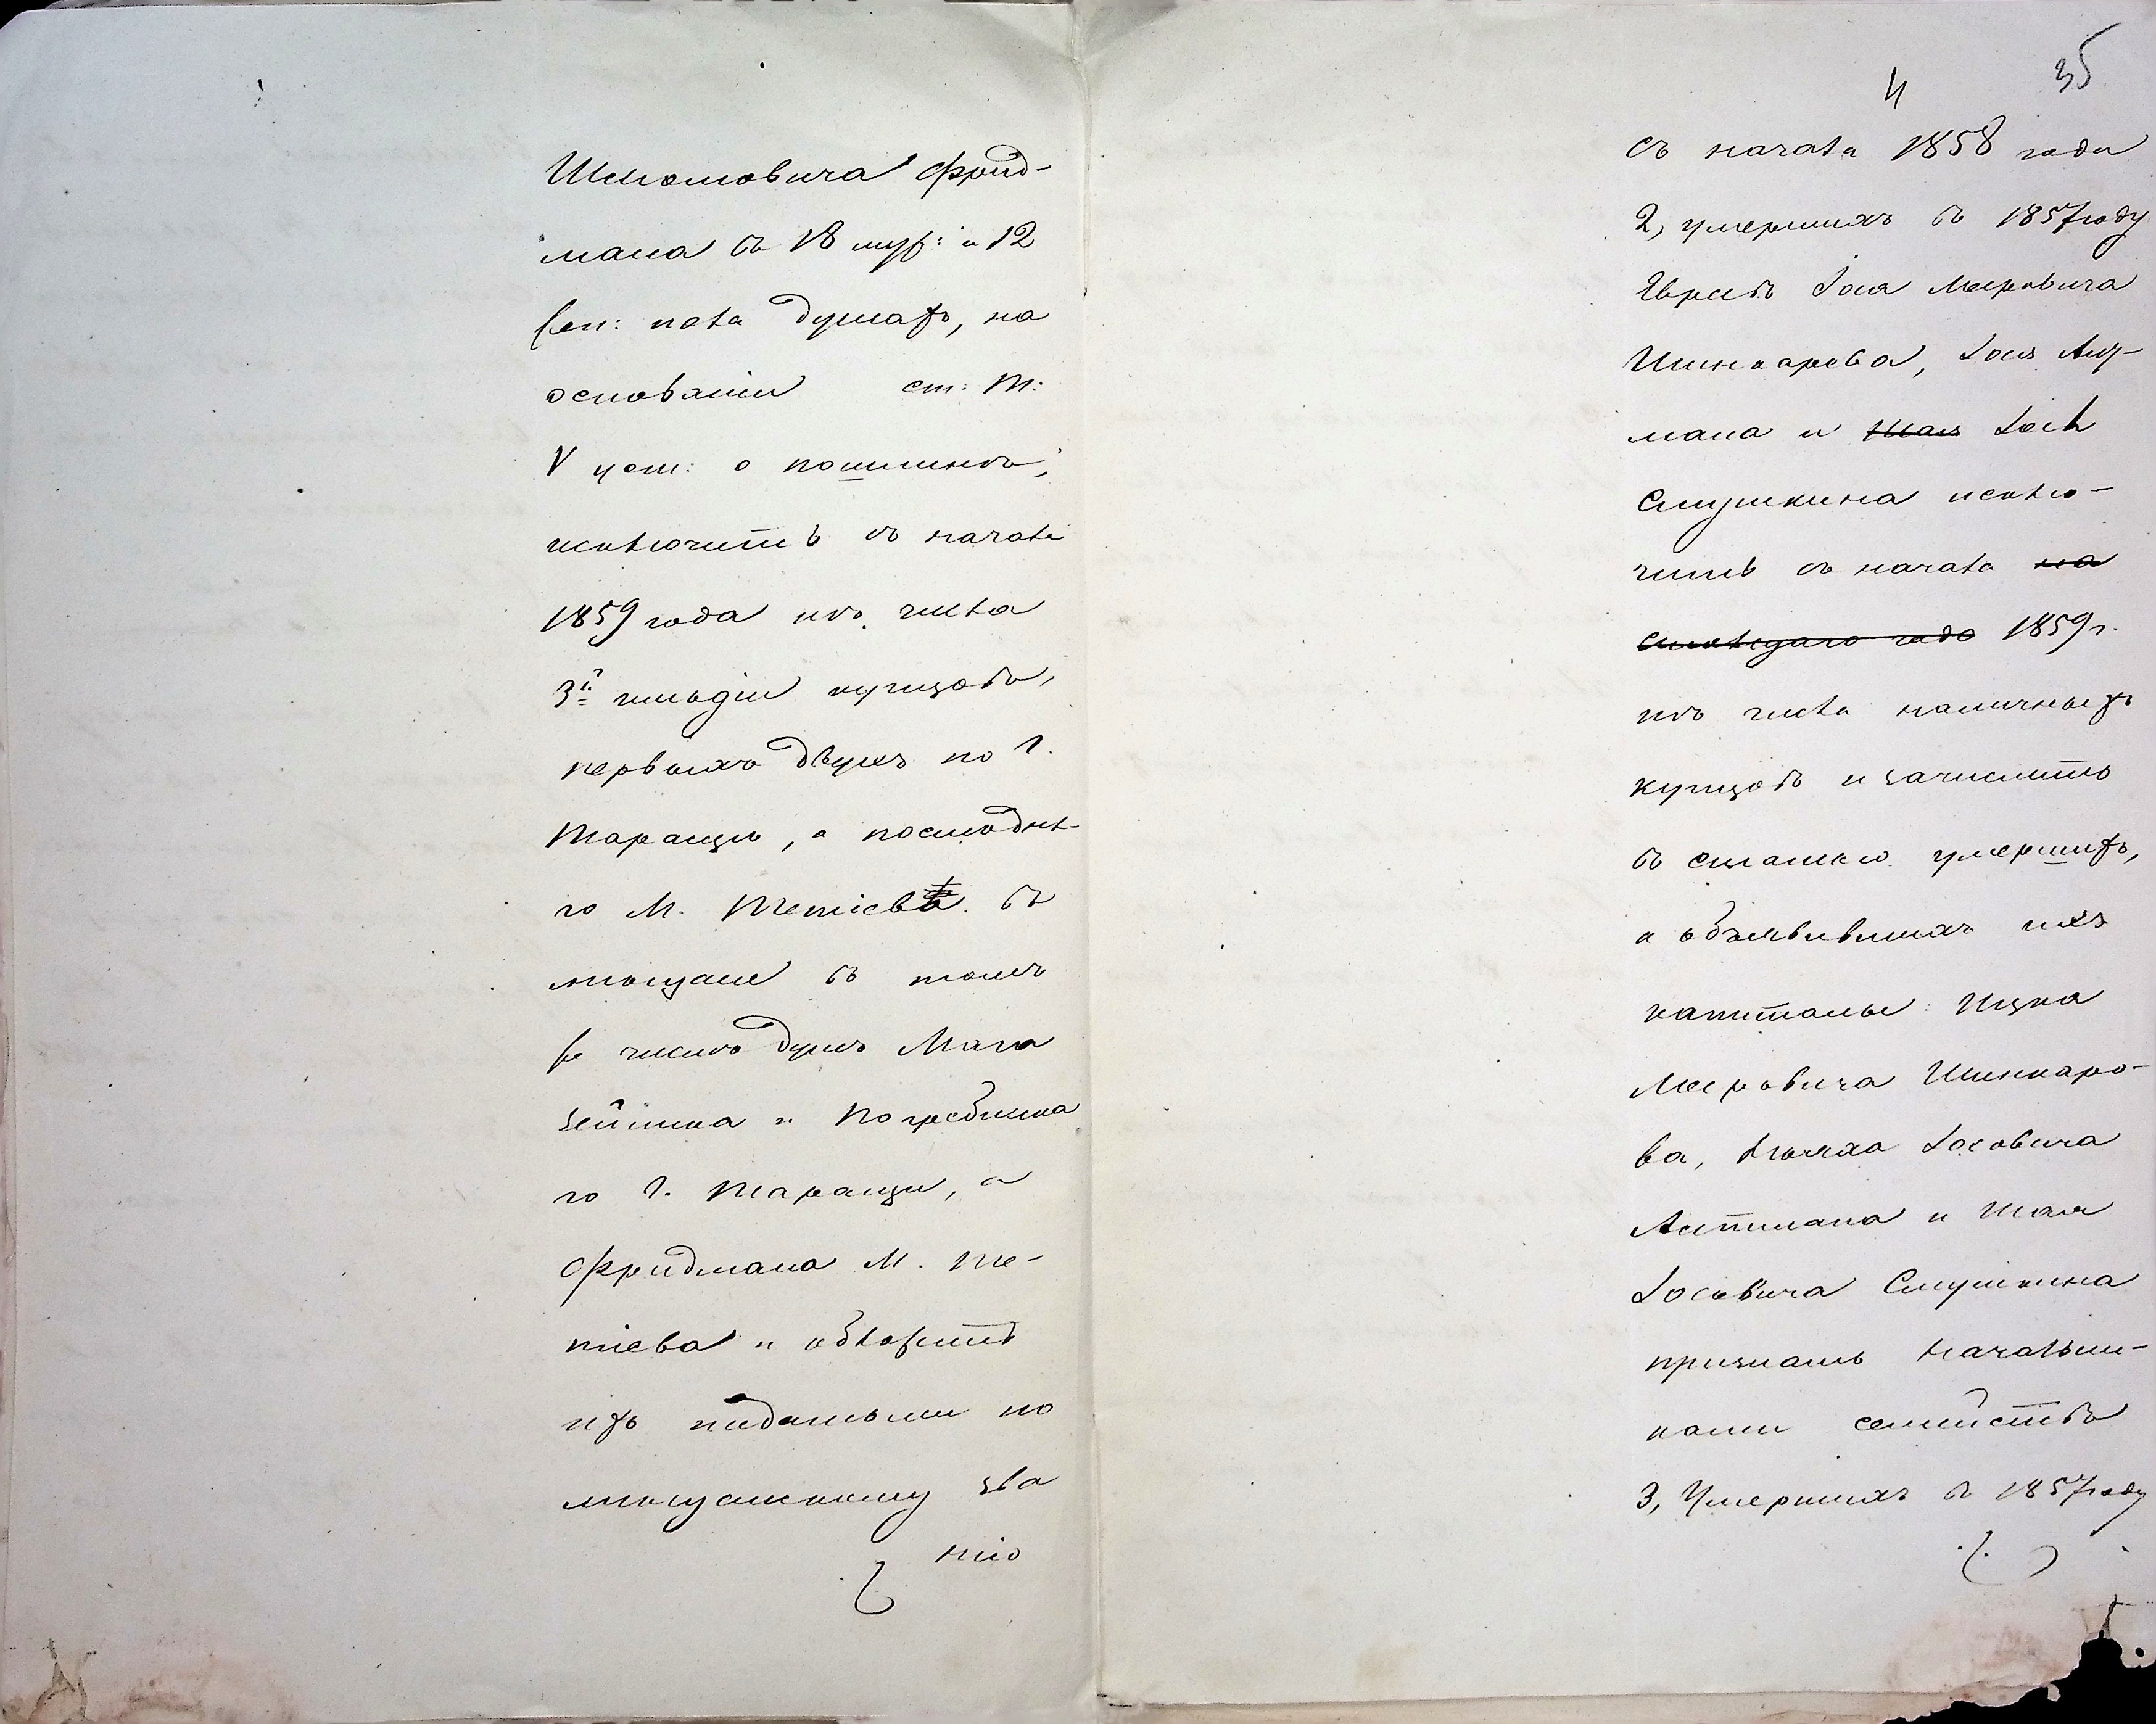 Шлиомовича Фрид-
мана съ 18 муж: и 12
жен: пола душахъ, на
основаніи ст: Т:
V уст: о пошлинѣ;
исключить съ начала
1859 года изъ числа
3й гильдіи купцовъ,
первыхъ двухъ по г.
Таращѣ, а послѣдня-
го М. Тетіева въ
мѣщане въ томъ
же числѣ душъ
и Погребишка
г. Таращи, а
Фридмана М. Те-
тіева и обложить
ихъ податьми по
мѣщанскому зва
нію
4 35
съ начала 1858 года
2, умершихъ въ 1857 году
Евреевъ Іося Меровича
Шинкарева, Іося
мана и Шая Іося
Слушкина исклю-
чить съ начала на
слѣдующаго года 1859 г.
изъ числа наличныхъ
купцовъ и зачислить
въ умершихъ,
а объявившихъ ихъ
капиталы: Ицка
Меровича Шинкаро-
ва, Іосовича
и Шая
Іосовича Слушкина
признать начальни-
ками семействъ
3, Умершихъ въ 1857 году